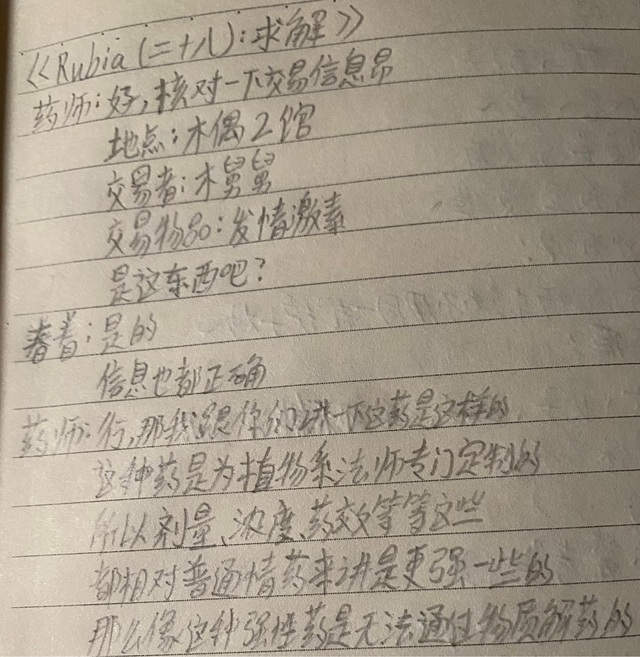 《Rubia(二十八):求解》
药师:好,核对一下交易信息昂
地点:木偶工馆
交易者:木舅舅
交易物品:发情激素
是这东西吧?
春着:是的
信息也都正确
药师:行,那我跟你们讲一下这药是这样的
这种药是为植物系法师专门定制的
所以剂量、浓度、药效等等这些
都相对普通情药来讲是更强一些的
那么像这种强性药是无法通过物质解药的